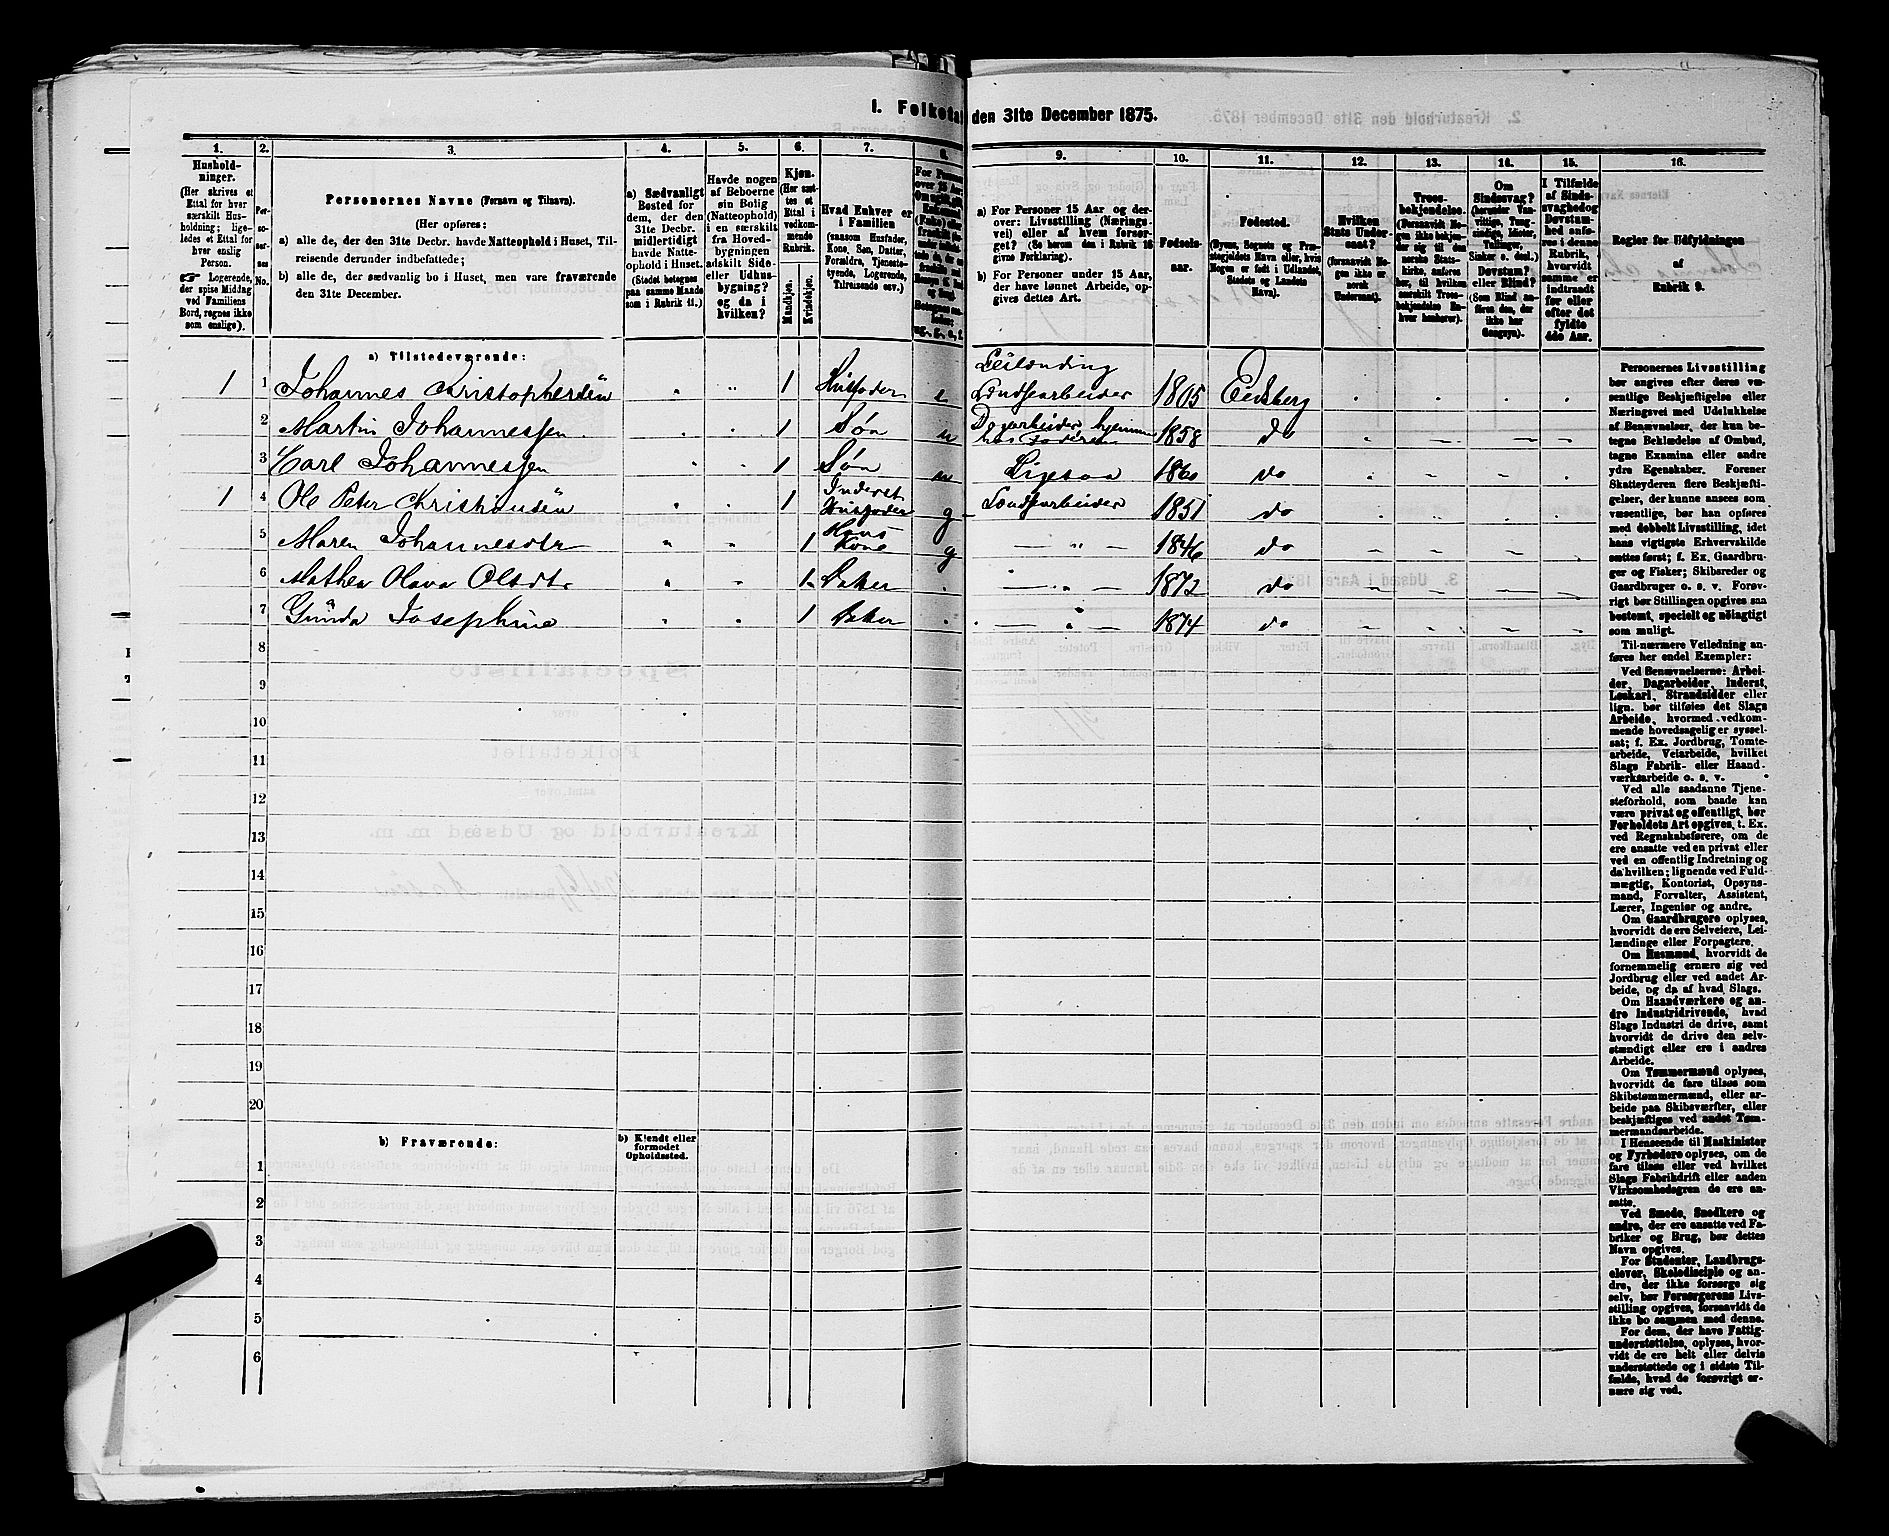 I. Folketal den 31te December 1875.
1. 2. 3. 4. 5. 6. 7. 8. 9. 10. 11. 12. 13. 14. 15. 16.
Hushold-
ninger.
(Her skrives et
Ettal for hver
særskilt Hus-
holdning; lige-
ledes et Ettal for
hver enslig
Person.
☞ Logerende,
der spise Middag
ved Familiens
Bord, regnes ikke
som enslige).
Per-
so-
ner-
nes
No.
Personernes Navne (Fornavn og Tilnavn).
(Her opføres:
a) alle de, der den 31te Decbr. havde Natteophold i Huset, Til-
reisende derunder indbefattede;
b) alle de, der sædvanlig bo i Huset, men vare fraværende
den 31te December.
a) Sædvanligt
Bosted for
dem, der den
31te Decbr.
midlertidigt
havde Natte-
ophold i Huset.
(Stedet betegnes
paa samme Maade
som i Rubrik 11.)
Havde nogen
af Beboerne
sin Bolig
(Natteophold)
i en særskilt
fra Hoved-
bygningen
adskilt Side-
eller Udhus-
bygning?
og da i
hvilken?
Kjøn.
(Her sæt-
tes et
Ettal i
vedkom-
mende
Rubrik.
Mandkjøn.
Kvindekjøn.
Hvad Enhver er
i Familien
(saasom Husfader,
Kone, Søn, Datter,
Forældre, Tjeneste-
tyende, Logerende,
Tilreisende osv.)
a) For Personer 15 Aar og der-
over: Livsstilling (Nærings-
vei) eller af hvem forsør-
get? (Se herom den i Rubrik 16
givne Forklaring).
b) For Personer under 15 Aar,
der have lønnet Arbeide, op-
gives dettes Art.
Fødsels-
aar.
Fødested.
(Byens, Sognets og Præ-
stegjeldets Navn, eller, hvis
Nogen er født i Udlandet,
Stedets og Landets
Navn).
Hvilken
Stats Under-
saat?
(forsaavidt No-
gen ikke er
norsk
Undersaat).
Troes-
bekjendelse.
(Forsaavidt No-
gen ikke bekjen-
der sig til den
norske Stats-
kirke, anføres
her, til hvilken
særskilt Troes-
bekjendelse En-
hver henhører).
Om
Sindssvag?
(herunder Van-
vittige, Tung-
sindige, Idioter,
Tullinger,
Sinker o. desl.)
Døvstum?
eller Blind?
(Som Blind an-
føres den, der
ikke har
Gangsyn).
I Tilfælde
af Sinds-
svaghed og
Døvstum-
hed anfø-
res i denne
Rubrik,
hvorvidt
samme er
indtraadt
før eller
efter det
fyldte
4de Aar.
Regler for Udfyldningen
af
Rubrik 9.
a) Tilstedeværende:
Leilending
1 1 Johannes Christophersen 1 Husfader e Landsarbeider 1805 Eidsberg
2 Martin Johannessen 1 Søn u Dagarbeider hjemme hos Faderen 1858 do
3 Carl Johannessen 1 Søn u Ligesaa 1860 do
1 4 Ole Peter Christiansen 1 Inderst Husfader g Landsarbeider 1851 do
5 Maren Johannesdtr 1 Hans Kone g — " — 1846 do
6 Mathea Olava Olsdtr 1 Datter — " — 1872 do
7 Gunda Josephine 1 Datter — " — 1874 do
8
9
10
11
12
13
14
15
16
17
18
19
20
b) Fraværende:
b) Kjendt eller
formodet
Opholdssted.
1
2
3
4
5
6
Personernes Livsstilling
bør angives efter deres væ-
sentlige Beskjæftigelse eller
Næringsvei med Udelukkelse
af Benævnelser, der kun be-
tegne Beklædelse af Ombud,
tagne Examina eller andre
ydre Egenskaber. Forener
Skatteyderen flere Beskjæfti-
gelser, der kunne ansees som
væsentlige, bør han opføres
med dobbelt Livsstilling, idet
hans vigtigste Erhvervskilde
sættes først; f. Ex. Gaardbru-
ger og Fisker; Skibsreder og
Gaardbruger o. s. v. Forøv-
rigt bør Stillingen opgives saa
bestemt, specielt og nøiagtigt
som muligt.
Til nærmere Veiledning an-
føres her endel Exempler:
Ved Benævnelserne: Arbei-
der, Dagarbeider, Inderst,
Løskarl, Strandsidder eller
lign. bør tilføies det Slags
Arbeide, hvormed vedkom-
mende hovedsagelig er syssel-
sat; f. Ex. Jordbrug, Tomte-
arbeide, Veiarbeide, hvilket
Slags Fabrik- eller Haand-
værksarbeide o. s. v.
Ved alle saadanne Tjene-
steforhold, som baade kan
være privat og offentligt, bør
Forholdets Art opgives, t. Ex.
ved Regnskabsførere, om de
ere ansatte ved en privat eller
ved en offentlig Indretning og
da hvilken; lignende ved Fuld-
mægtig, Kontorist, Opsyns-
mand, Forvalter, Assistent,
Lærer, Ingeniør og andre.
Om Gaardbrugere oplyses,
hvorvidt de ere Selveiere, Lei-
lændinge eller Forpagtere.
Om Husmænd, hvorvidt de
fornemmelig ernære sig ved
Jordbrug eller ved andet Ar-
beide, og da af hvad Slags.
Om Haandværkere og an-
dre Industridrivende, hvad
Slags Industri de drive, samt
hvorvidt de drive den selv-
stændigt eller ere i andres
Arbeide.
Om Tømmermænd oplyses,
hvorvidt de fare tilsøs som
Skibstømmermænd, eller ar-
beide paa Skibsværfter, eller
beskjæftiges ved andet Tøm-
mermandsarbeide.
I Henseende til Maskinister
og Fyrbødere oplyses, om de
fare tilsøs eller ved hvilket
Slags Fabrikdrift eller anden
Virksomhedsgren de ere an-
satte.
Ved Smede, Snedkere og
andre, der ere ansatte ved Fa-
briker og Brug, bør dettes
Navn opgives.
For Studenter, Landbrugs-
elever, Skoledisciple og an-
dre, der ikke forsørge sig
selv, bør Forsørgerens Livs-
stilling opgives, forsaavidt de
ikke bo sammen med denne.
For dem, der have Fattig-
understøttelse, oplyses, hvor-
vidt de ere helt eller delvis
understøttede og i sidste Til-
fælde, hvad de forøvrigt er-
nære sig ved.